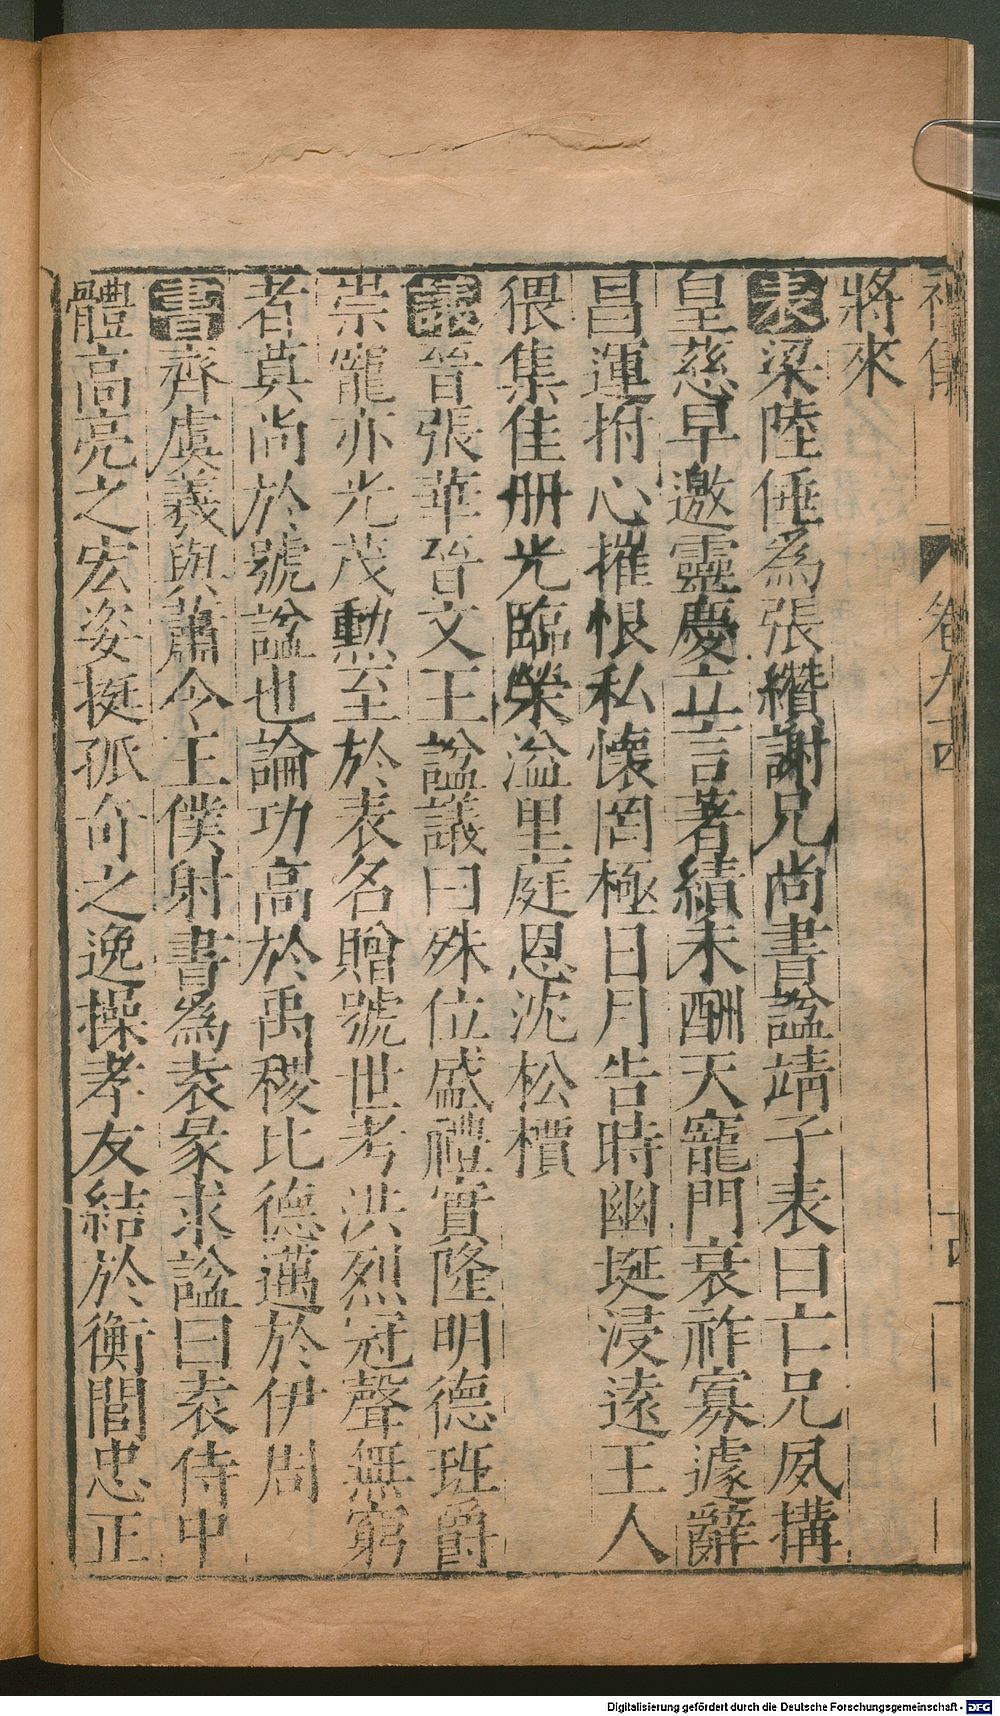 卷九十四
十四
將來
表梁陸倕為張纘謝兄尚書諡靖子表曰亡兄夙搆
皇慈早邀靈慶立言著績未酬天寵門衰祚寡遽辭
昌運拊心摧恨私懷罔極日月告時幽埏浸遠王人
猥集佳册光臨榮溢里庭恩沈松檟
議晉張華晉文王諡議曰殊位盛禮實隆明德班爵
崇寵亦光茂勳至於表名贈號世考洪烈冠聲無窮
者莫尚於號諡也論功高於禹稷比德邁於伊周
書齊虞羲與蕭令王僕射書為袁彖求諡曰袁侍中
體高亮之宏姿挺孤奇之逸操孝友結於衡閭忠正
Digitalisierung gefördert durch die Deutsche Forschungsgemeinschaft - DFG